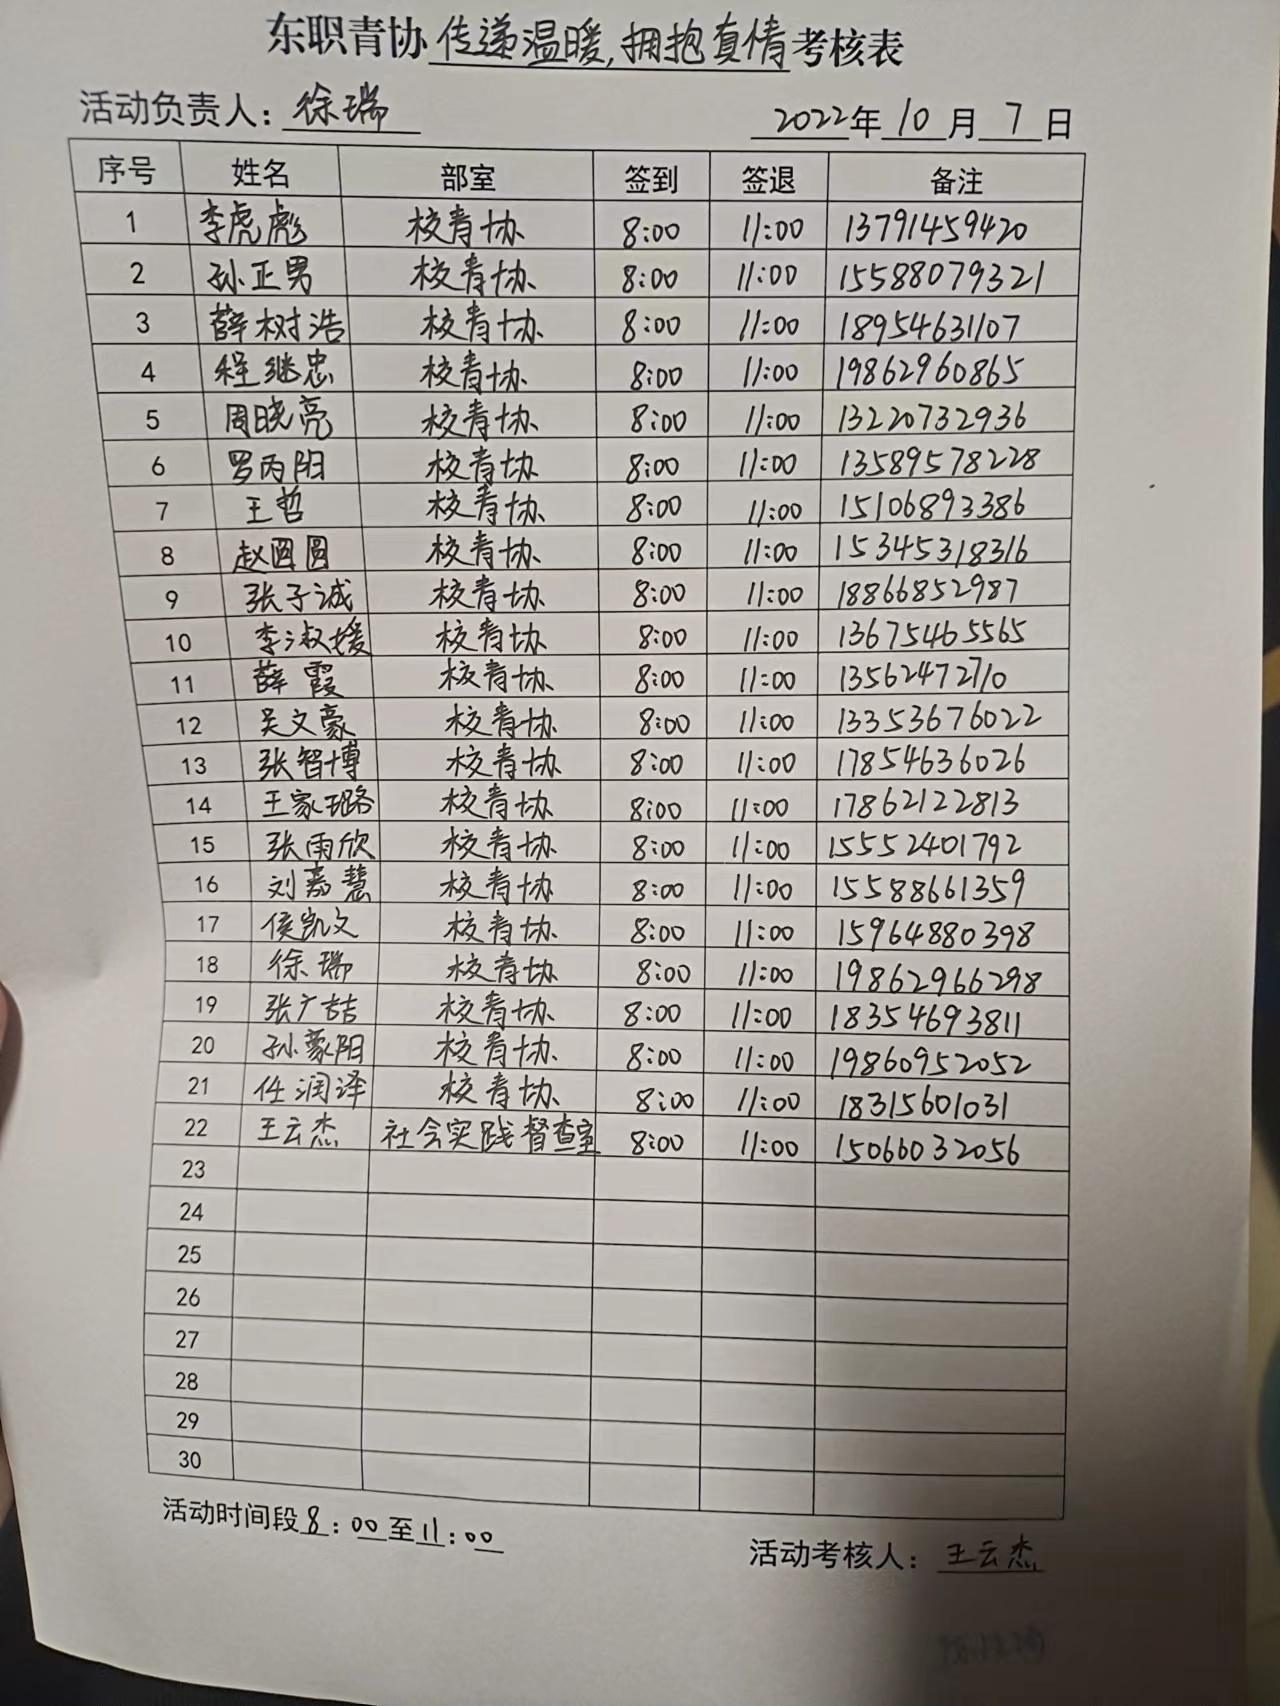 东职青协传递温暖,拥抱真情考核表
活动负责人：徐瑞 2022年10月7日
序号 姓名 部室 签到 签退 备注
1 李虎彪 校青协 8:00 11:00 13791459420
2 孙正男 校青协 8:00 11:00 15588079321
3 薛树浩 校青协 8:00 11:00 18954631107
4 程继忠 校青协 8:00 11:00 19862960865
5 周晓亮 校青协 8:00 11:00 13220732936
6 罗丙阳 校青协 8:00 11:00 13589578228
7 王哲 校青协 8:00 11:00 15106893386
8 赵圆圆 校青协 8:00 11:00 15345318316
9 张子诚 校青协 8:00 11:00 18866852987
10 李淑媛 校青协 8:00 11:00 13675465565
11 薛霞 校青协 8:00 11:00 13562472710
12 吴文豪 校青协 8:00 11:00 13353676022
13 张智博 校青协 8:00 11:00 17854636026
14 王家璐 校青协 8:00 11:00 17862122813
15 张雨欣 校青协 8:00 11:00 15552401792
16 刘嘉慧 校青协 8:00 11:00 15588661359
17 侯凯文 校青协 8:00 11:00 15964880398
18 徐瑞 校青协 8:00 11:00 19862966298
19 张广喆 校青协 8:00 11:00 18354693811
20 孙蒙阳 校青协 8:00 11:00 19860952052
21 任润泽 校青协 8:00 11:00 18315601031
22 王云杰 社会实践督查室 8:00 11:00 15066032056
23
24
25
26
27
28
29
30
活动时间段8:00至11:00
活动考核人：王云杰